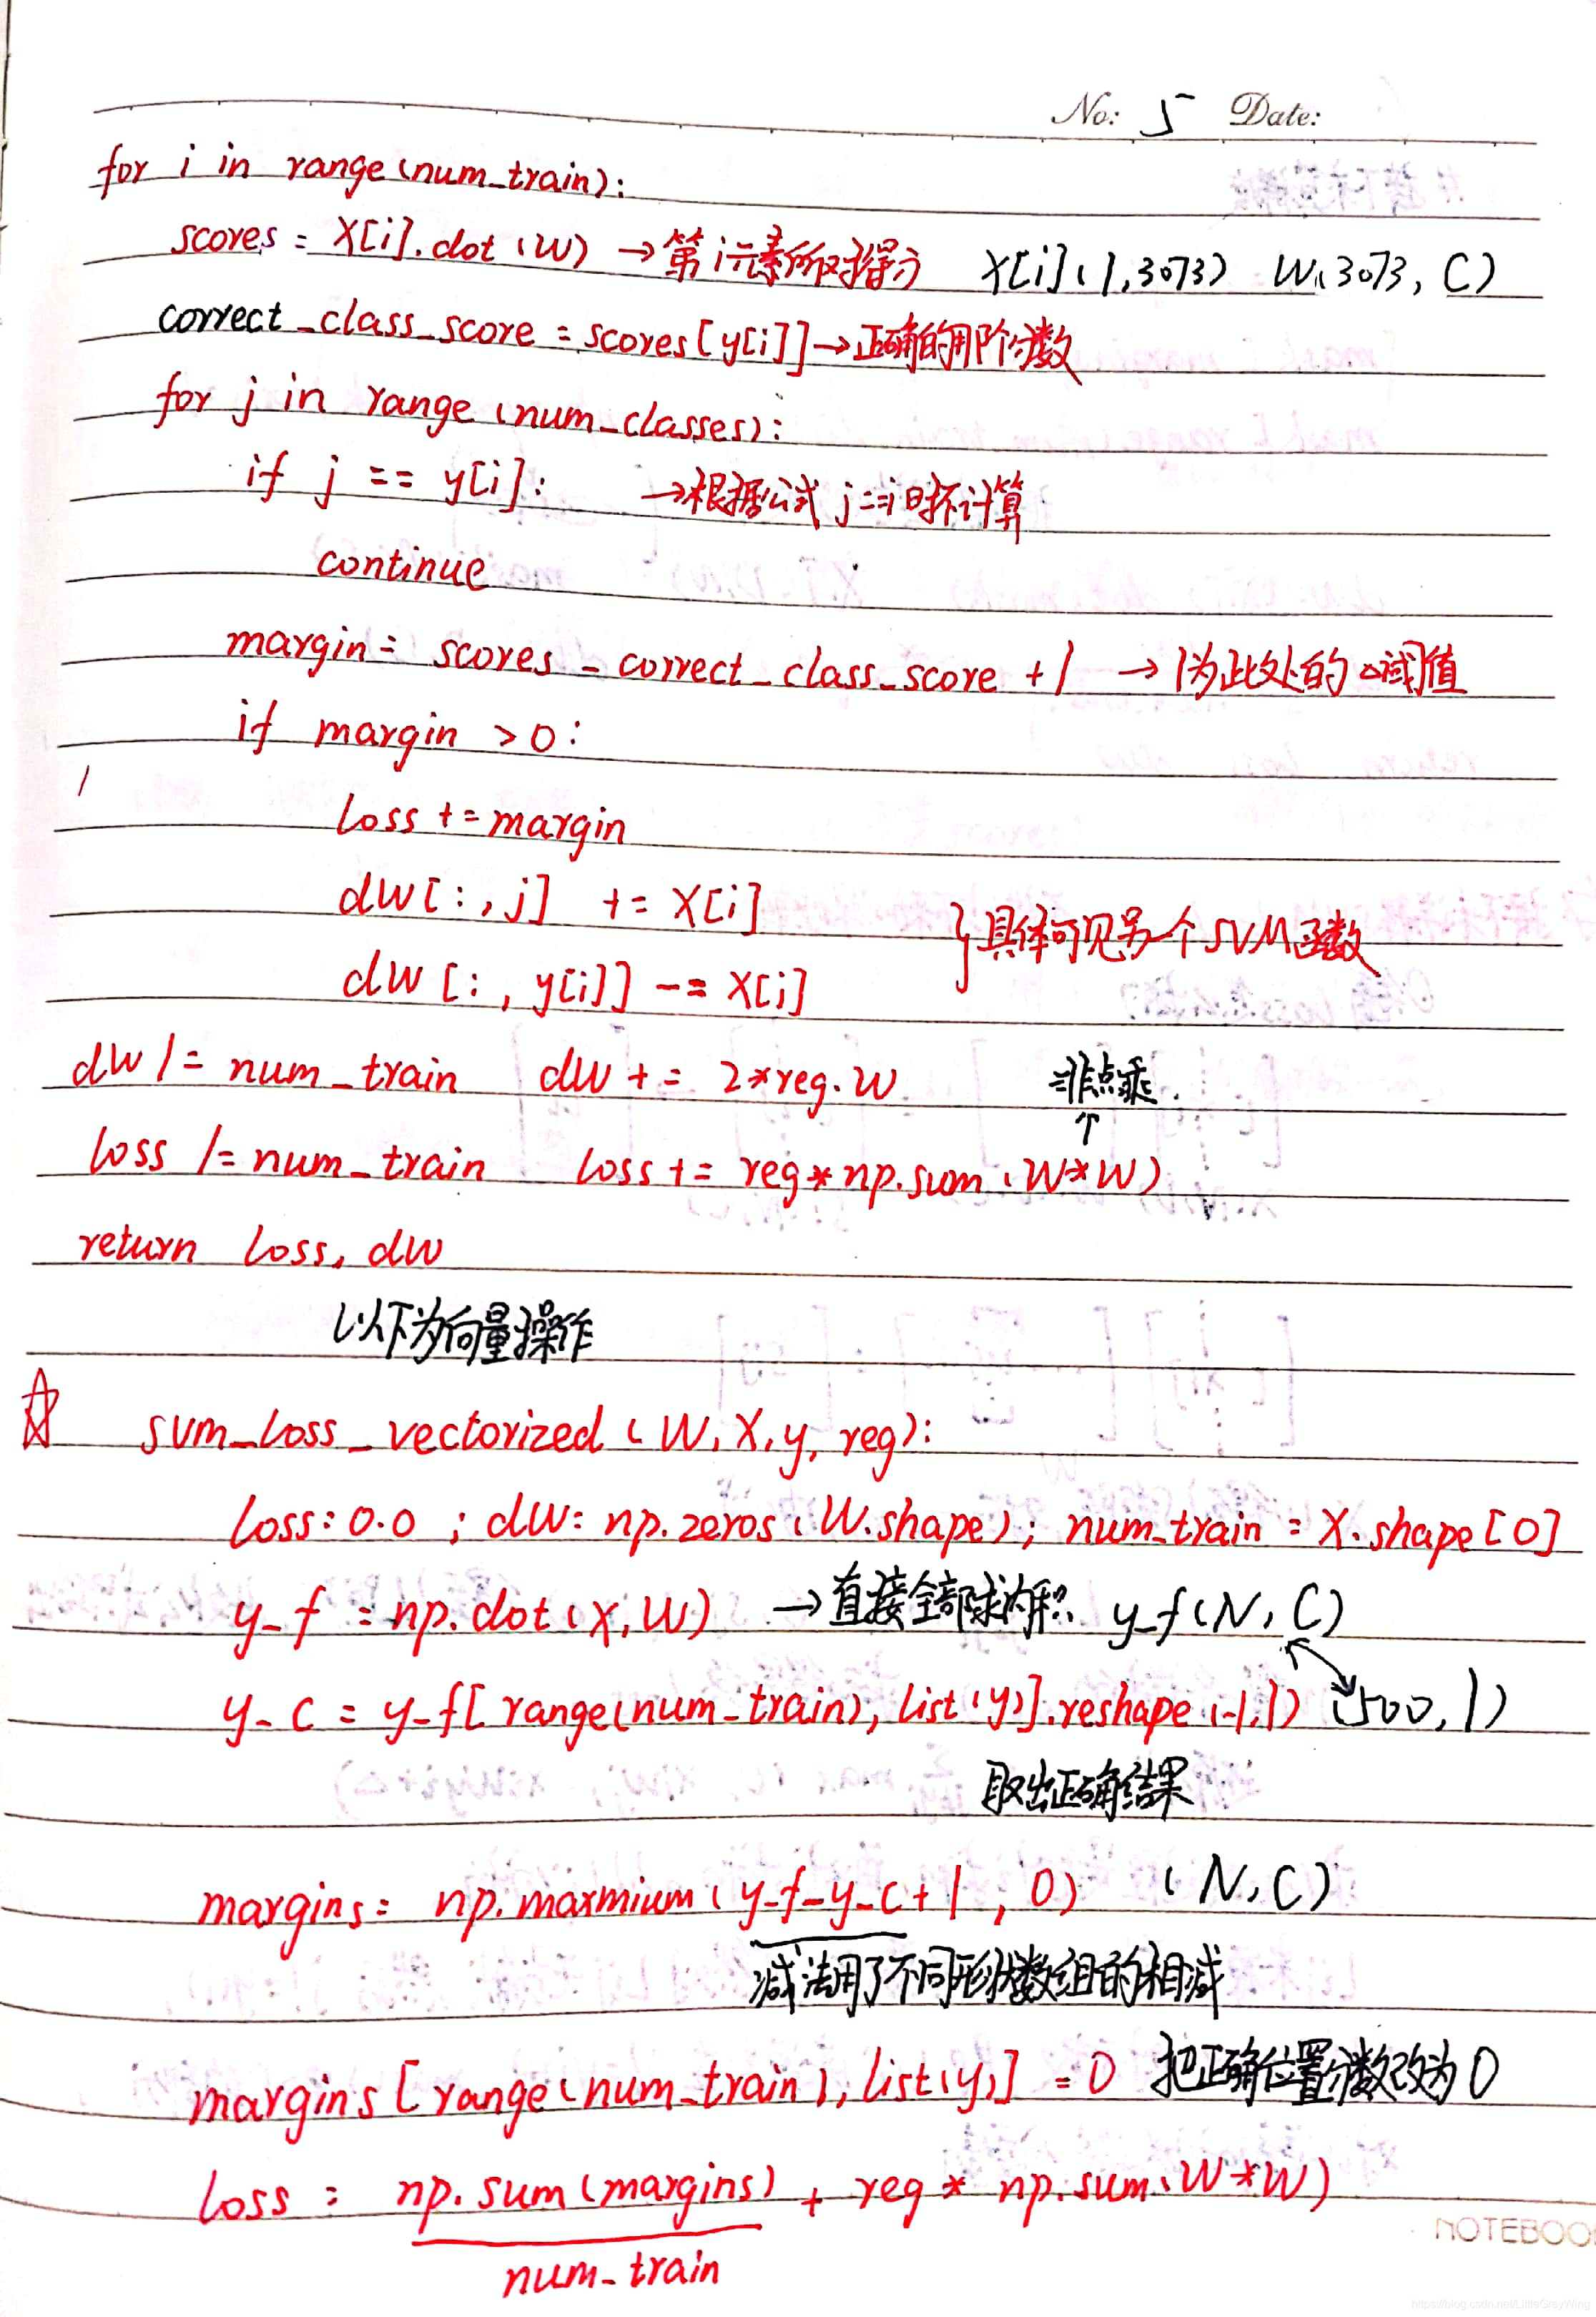 No: 5 Date:
for i in range(num_train):
scores = X[i].dot(W) → 第i元素所对得分 X[i](1,3073) W(3073, C)
correct_class_score = scores[y[i]] → 正确的那个分数
for j in range(num_classes):
if j == y[i]: → 根据公式 j==i时不计算
continue
margin = scores - correct_class_score + 1 → 1为此处的△阈值
if margin > 0:
loss += margin
dW[:,j] += X[i]
} 具体可见另一个SVM函数
dW[:, y[i]] -= X[i]
dW /= num_train dW += 2*reg·W 非点乘
↑
loss /= num_train loss += reg*np.sum(W*W)
return loss, dW
以下为向量操作
☆ svm_loss_vectorized (W, X, y, reg):
loss = 0.0 ; dW = np.zeros(W.shape); num_train = X.shape[0]
y_f = np.dot(X, W) → 直接全部求内积 y_f(N, C)
y_c = y_f[range(num_train), list(y)].reshape(-1,1) (500, 1)
取出正确结果
margins = np.maxmium(y_f-y_c+1, 0) (N, C)
减法用了不同形状数组的相减
margins[range(num_train), list(y)] = 0 把正确位置分数改为0
loss = np.sum(margins) + reg * np.sum(W*W)
num_train
NOTEBOO
https://blog.csdn.net/LittleGreyWing